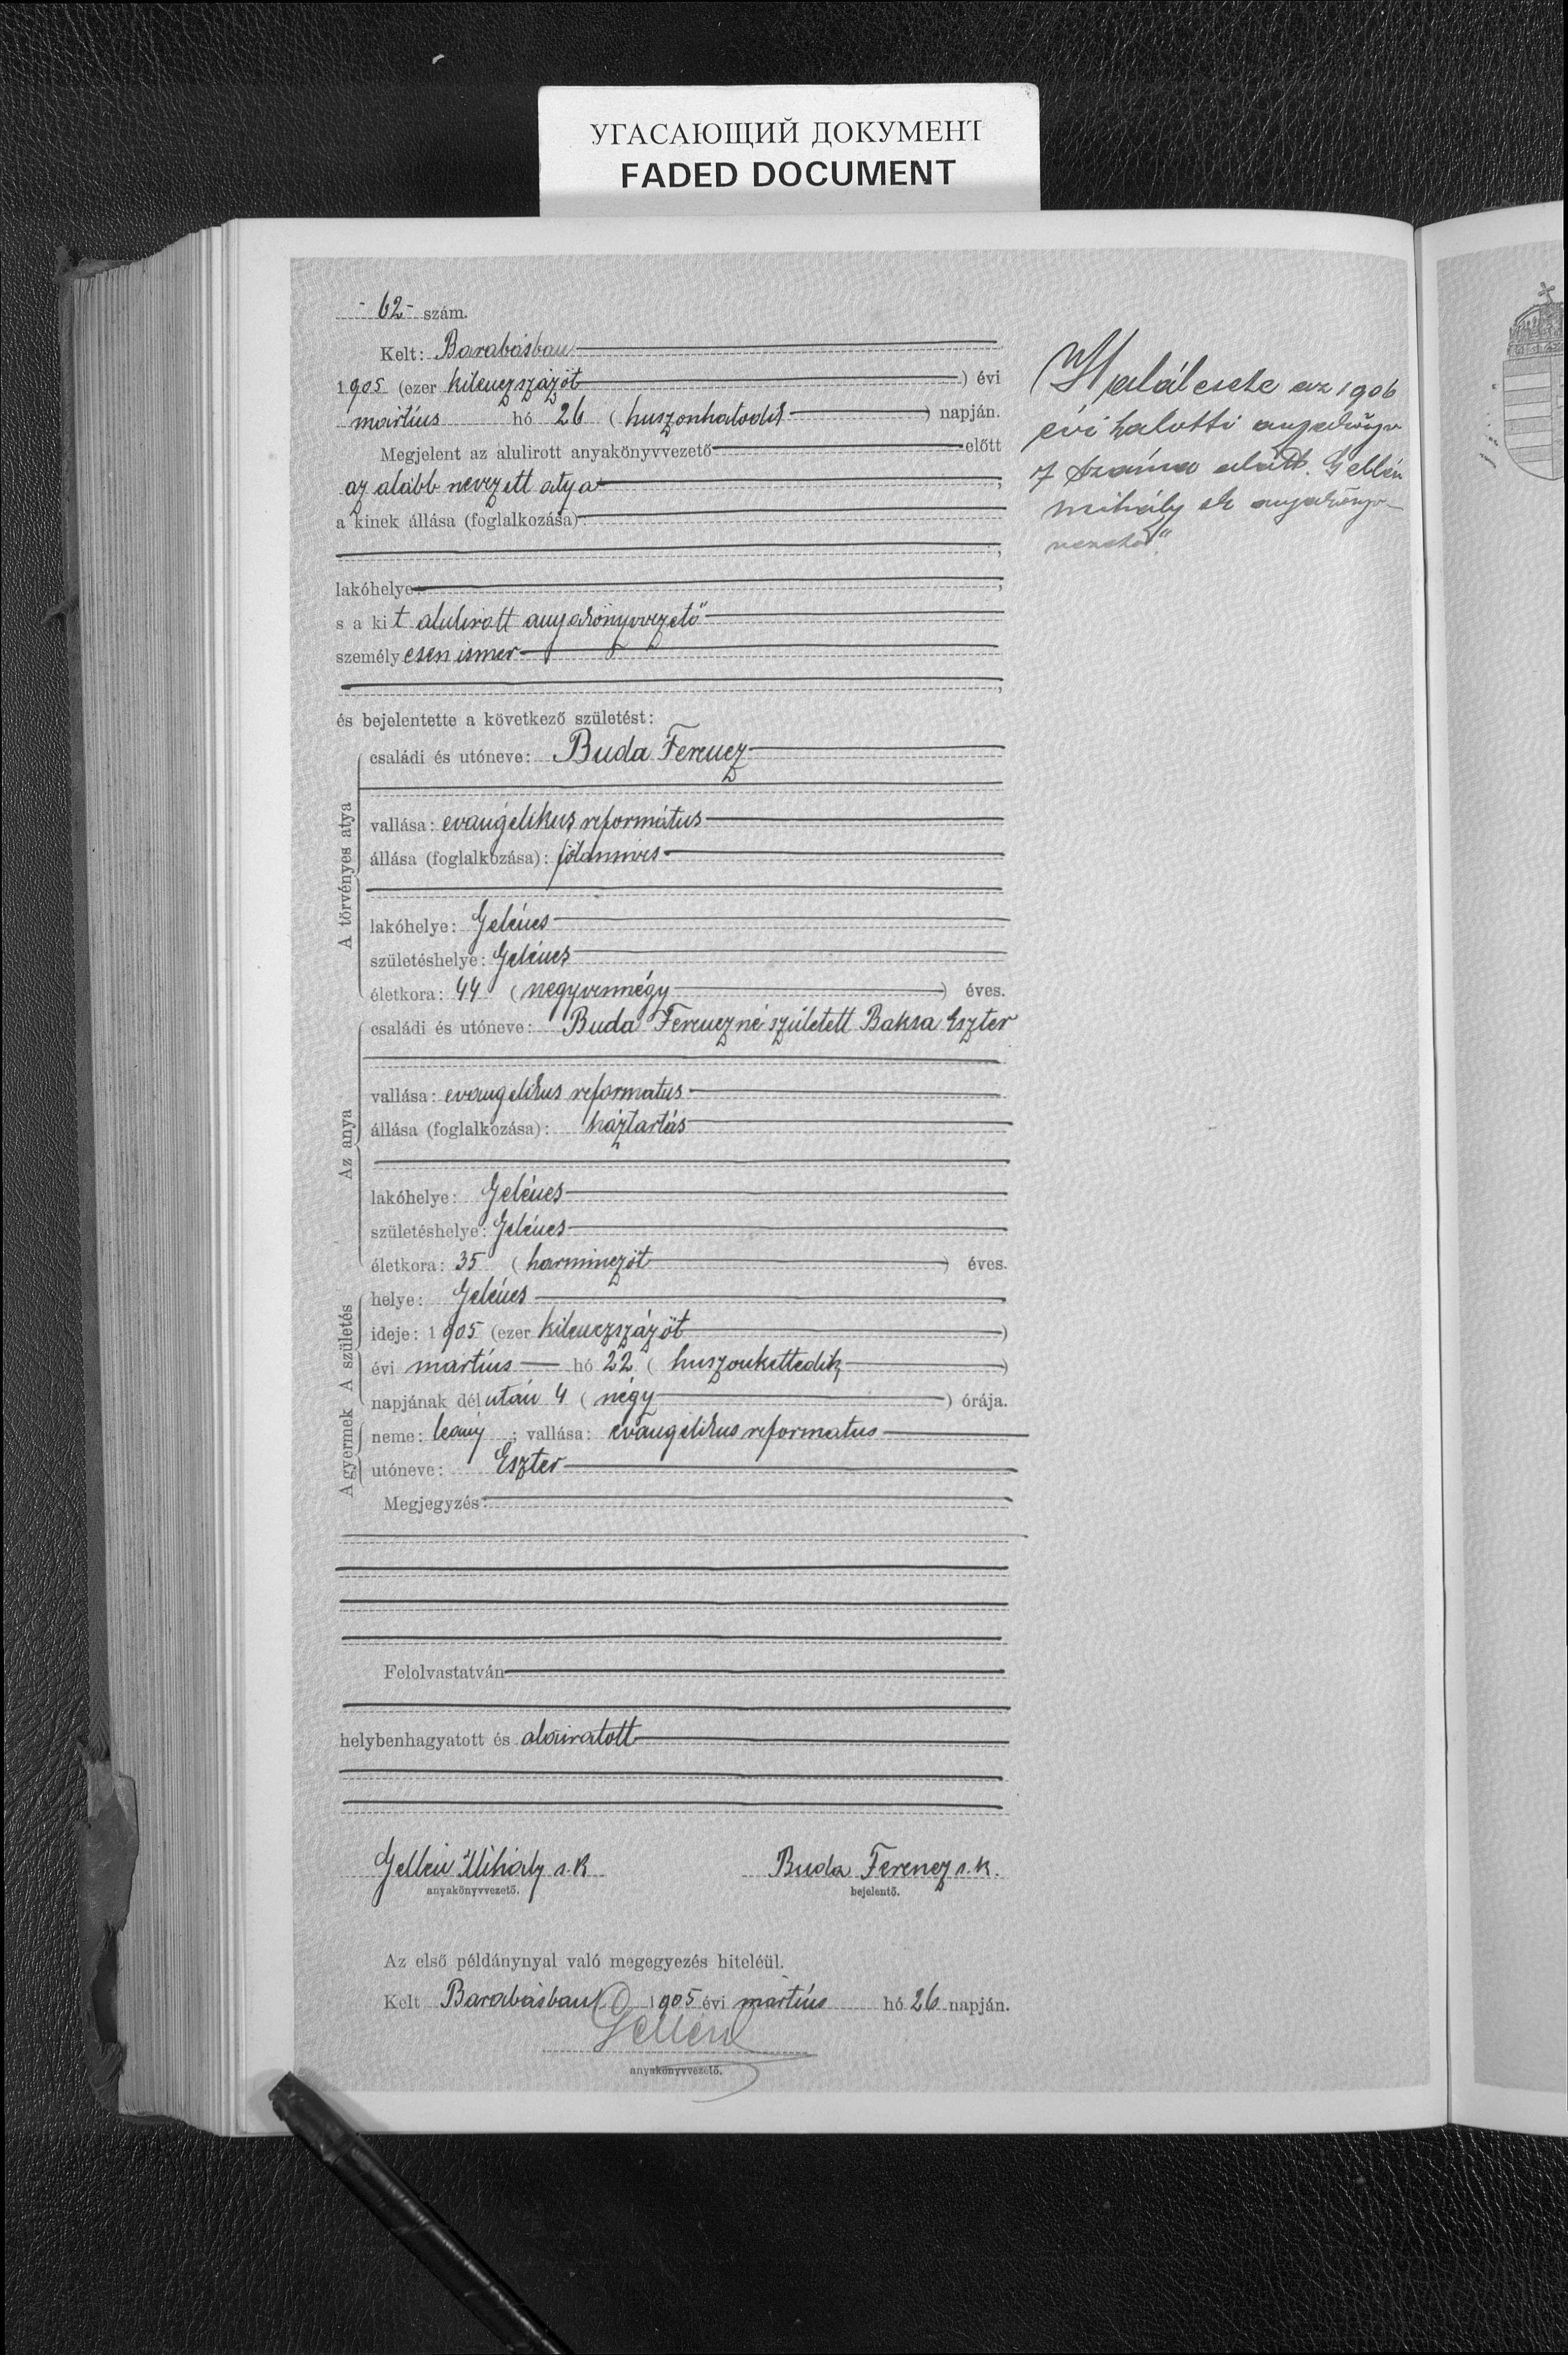 УГАСАЮЩИЙ ДОКУМЕНТ
FADED DOCUMENT
- 62 - szám.
Kelt: Barabásban
1905 (ezer kilenczszázöt ) évi
mártíus hó 26 ( huszonhatodik ) napján.
Megjelent az alulirott anyakönyvvezető előtt
az alább nevezett atya ,
a kinek állása (foglalkozása):
,
lakóhelye: ,
s a kit alulírott anyakönyvvezető
személyesen ismer
,
és bejelentette a következő születést:
A törvényes atya
családi és utóneve: Buda Ferencz
vallása: evangélikus református
állása (foglalkozása): földmives
lakóhelye: Gelénes
születéshelye: Gelénes
életkora: 44 ( negyvennégy ) éves.
Az anya
családi és utóneve: Buda Ferenczné született Baksa Eszter
vallása: evangelikus reformatus
állása (foglalkozása): háztartás
lakóhelye: Gelénes
születéshelye: Gelénes
életkora: 35 ( harminczöt ) éves.
A születés
helye: Gelénes
ideje: 1905 (ezer kilenczszázöt )
évi martíus hó 22 ( huszonkettedik )
napjának délután 4 ( négy ) órája.
A gyermek
neme: leány ; vallása: evangelikus reformatus
utóneve: Eszter
Megjegyzés:
Felolvastatván
helybenhagyatott és aláiratott
Gellén Mihály s.k Buda Ferencz s.k.
anyakönyvvezető. bejelentő.
Az első példánynyal való megegyezés hiteléül.
Kelt Barabásban 1905 évi martíus hó 26 napján.
Gellén
anyakönyvvezető.
"Halálesete az 1906
évi halotti anyakönyv
7 száma alatt. Gellén
Mihály sk anyakönyv-
vezető"